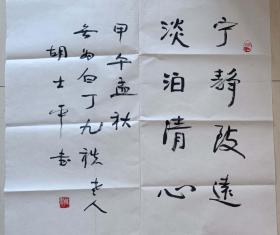 宁静致远
淡泊清心
甲午孟秋
无为白丁九秩老人
胡士平书